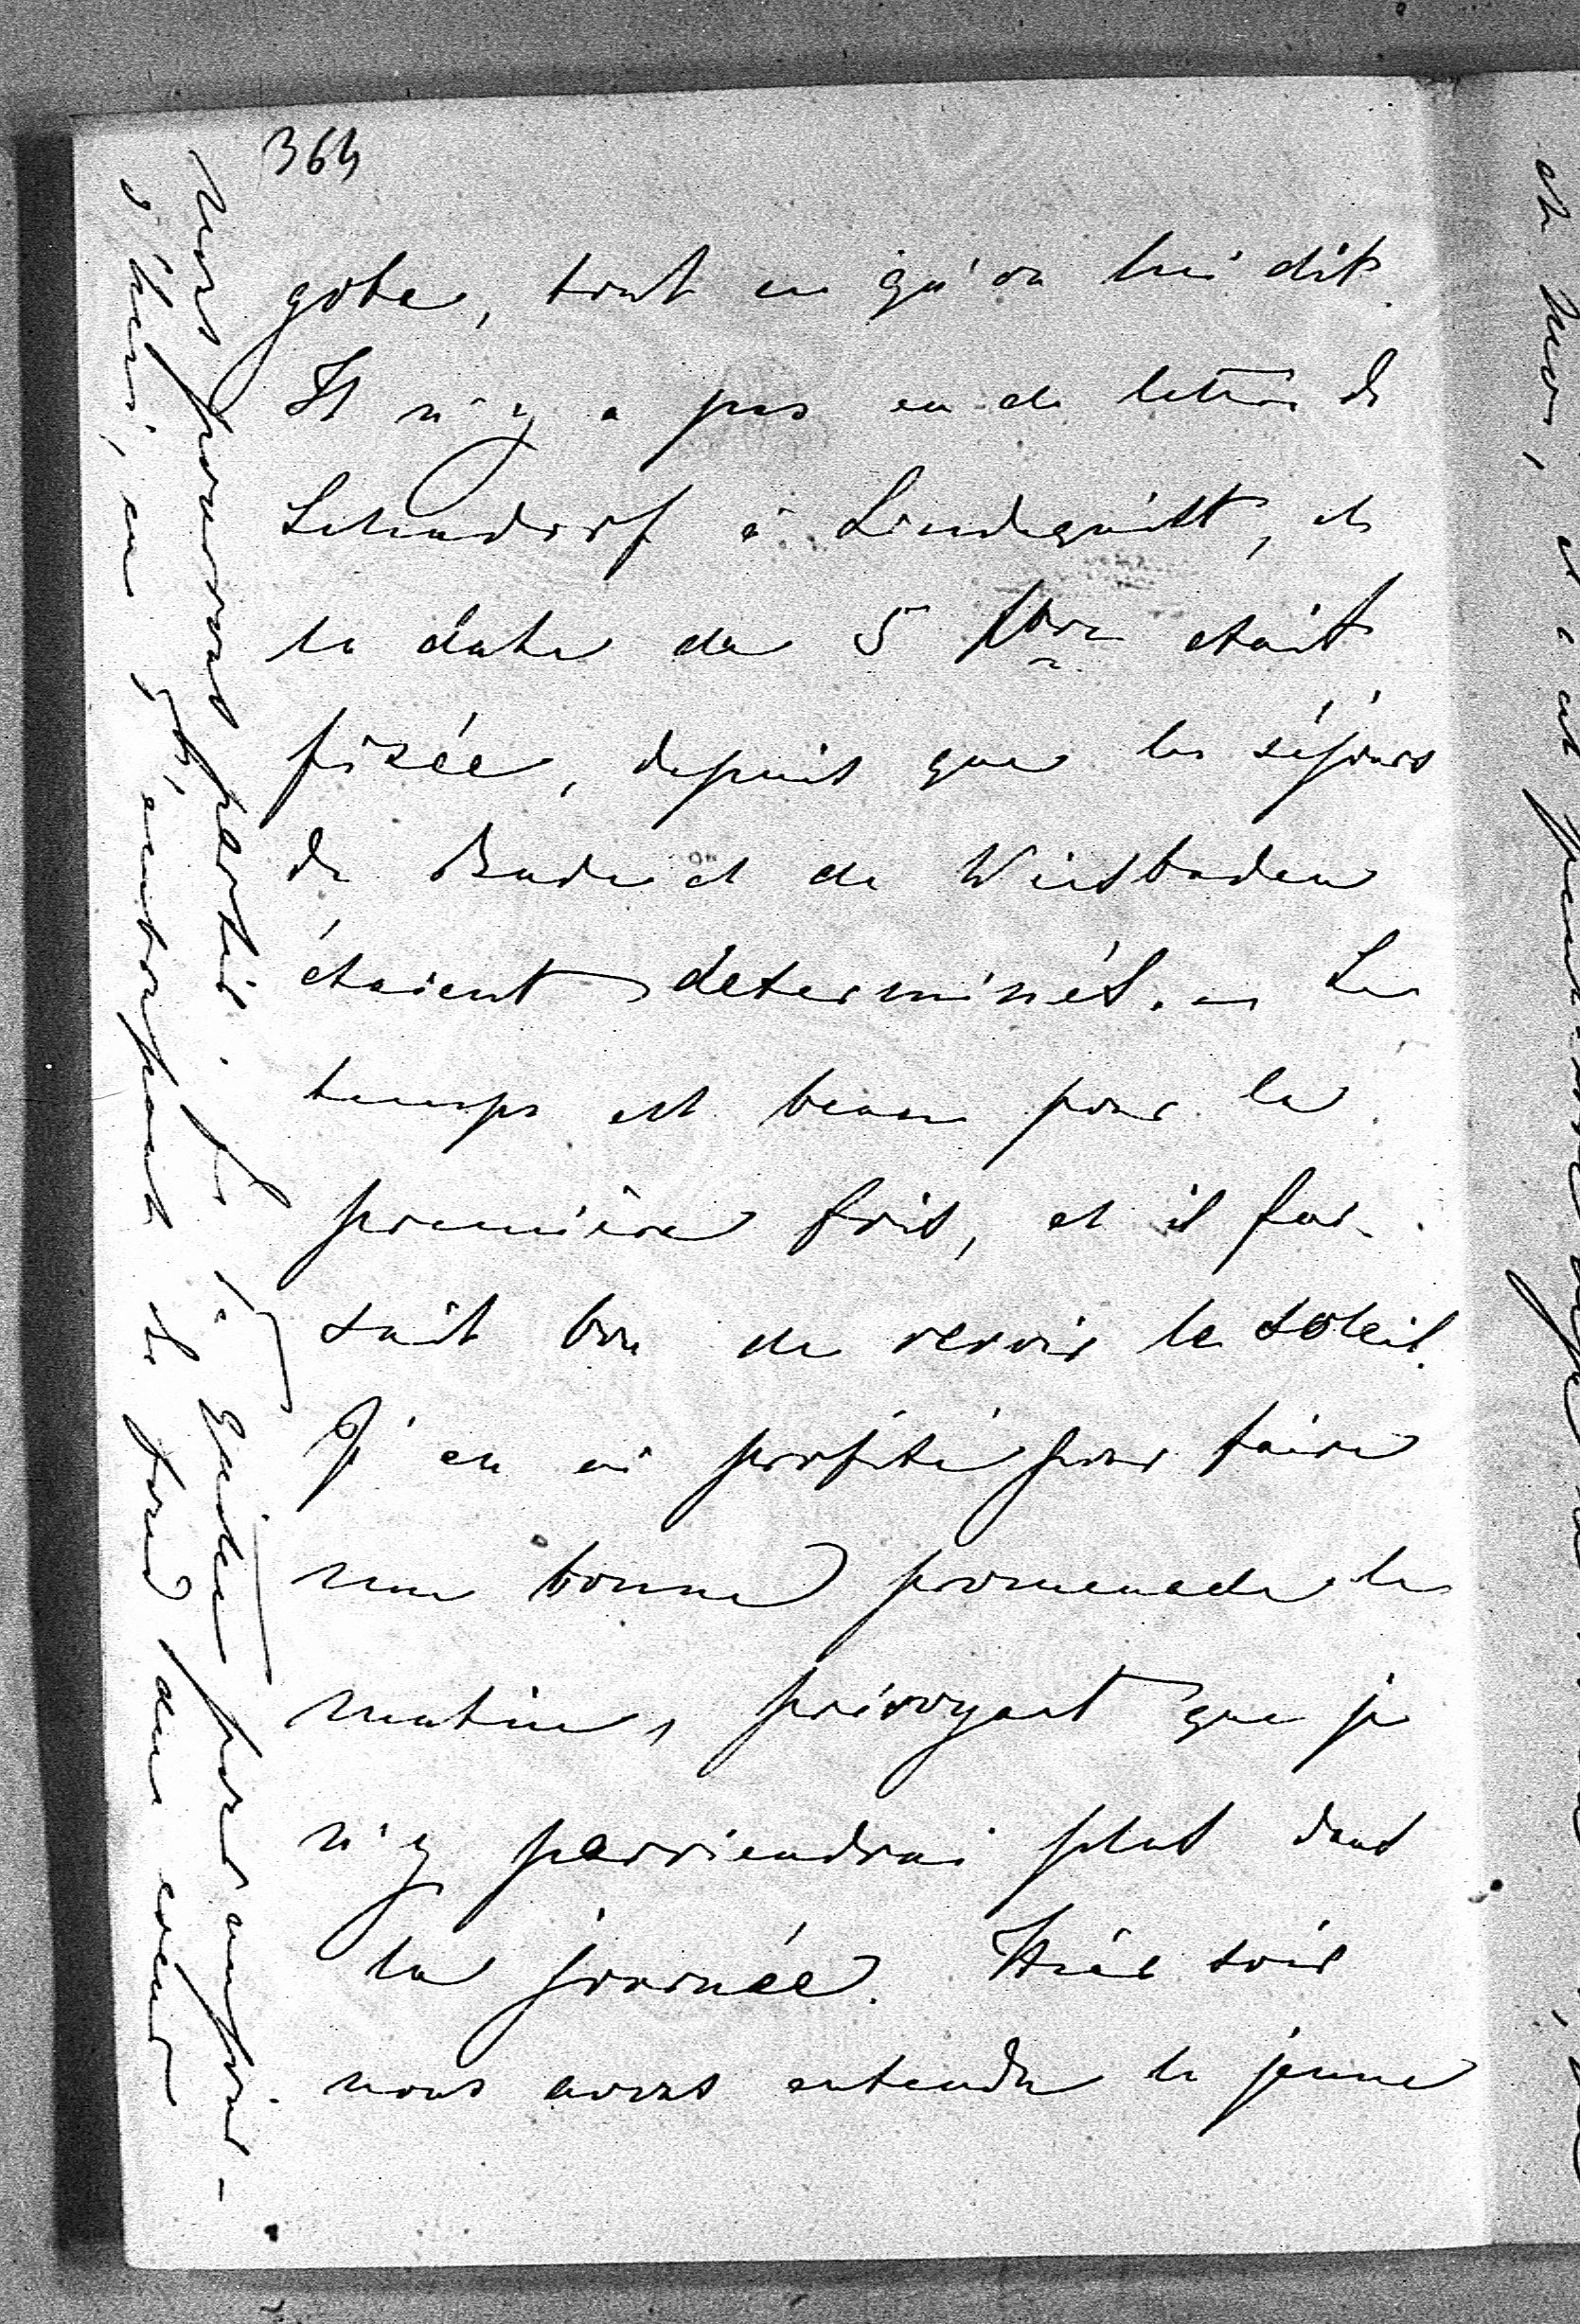 364
gobe, tout ce qu'on lui dit.
Il n'y a pas eu de lettre de
Lehndorf à Lindequist, et
la date du 5 9bre était
fixée, depuis que les séjours
de Bade et de Wiesbaden
étaient déterminés. — Le
temps est beau pour la
première fois, et il fai-
sait bon de revoir le soleil.
J'en ai profité pour faire
une bonne promenade le
matin, prévoyant que je
n'y parviendrai plus dans
la journée. Hier soir
nous avons entendu le jeune
nous pouvons partir.
pour aujourd-
d'hui, en
du fond du cœur